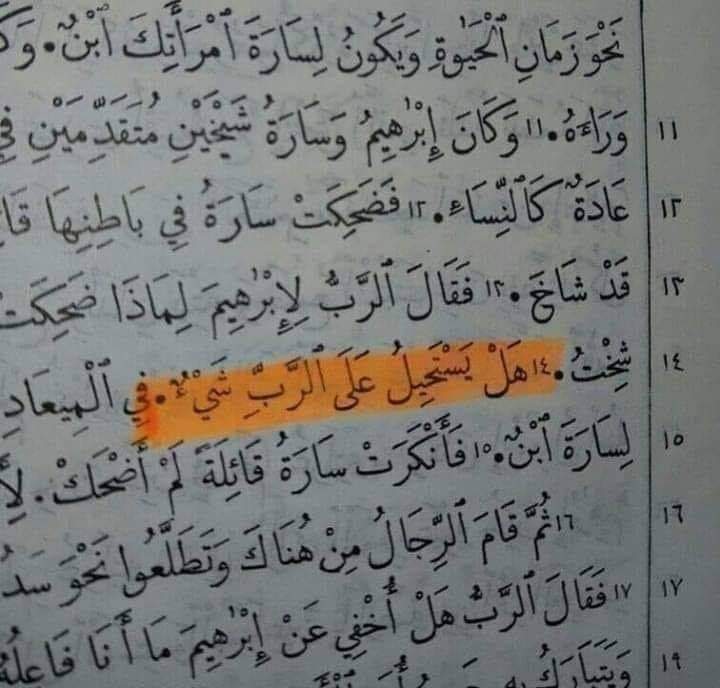 نَحْوَ زَمَانِ ٱلْحَيٰوةِ وَيَكُونُ لِسَارَةَ ٱمْرَأَتِكَ ٱبْنٌ.
١١ وَرَاءَهُ. ١١ وَكَانَ إِبْرٰهِيمُ وَسَارَةُ شَيْخَيْنِ مُتَقَدِّمَيْنِ فِي
١٢ عَادَةٌ كَٱلنِّسَاءِ. ١٢ فَضَحِكَتْ سَارَةُ فِي بَاطِنِهَا
١٣ قَدْ شَاخَ. ١٣ فَقَالَ ٱلرَّبُّ لِإِبْرٰهِيمَ لِمَاذَا ضَحِكَتْ
١٤ شِخْتُ. ١٤ هَلْ يَسْتَحِيلُ عَلَى ٱلرَّبِّ شَيْءٌ. فِي ٱلْمِيعَادِ
١٥ لِسَارَةَ ٱبْنٌ. ١٥ فَأَنْكَرَتْ سَارَةُ قَائِلَةً لَمْ أَضْحَكْ.
١٦ ١٦ ثُمَّ قَامَ ٱلرِّجَالُ مِنْ هُنَاكَ وَتَطَلَّعُوا نَحْوَ
١٧ ١٧ فَقَالَ ٱلرَّبُّ هَلْ أُخْفِي عَنْ إِبْرٰهِيمَ مَا أَنَا فَاعِلُهُ
١٩ وَيَتَبَارَكُ بِهِ